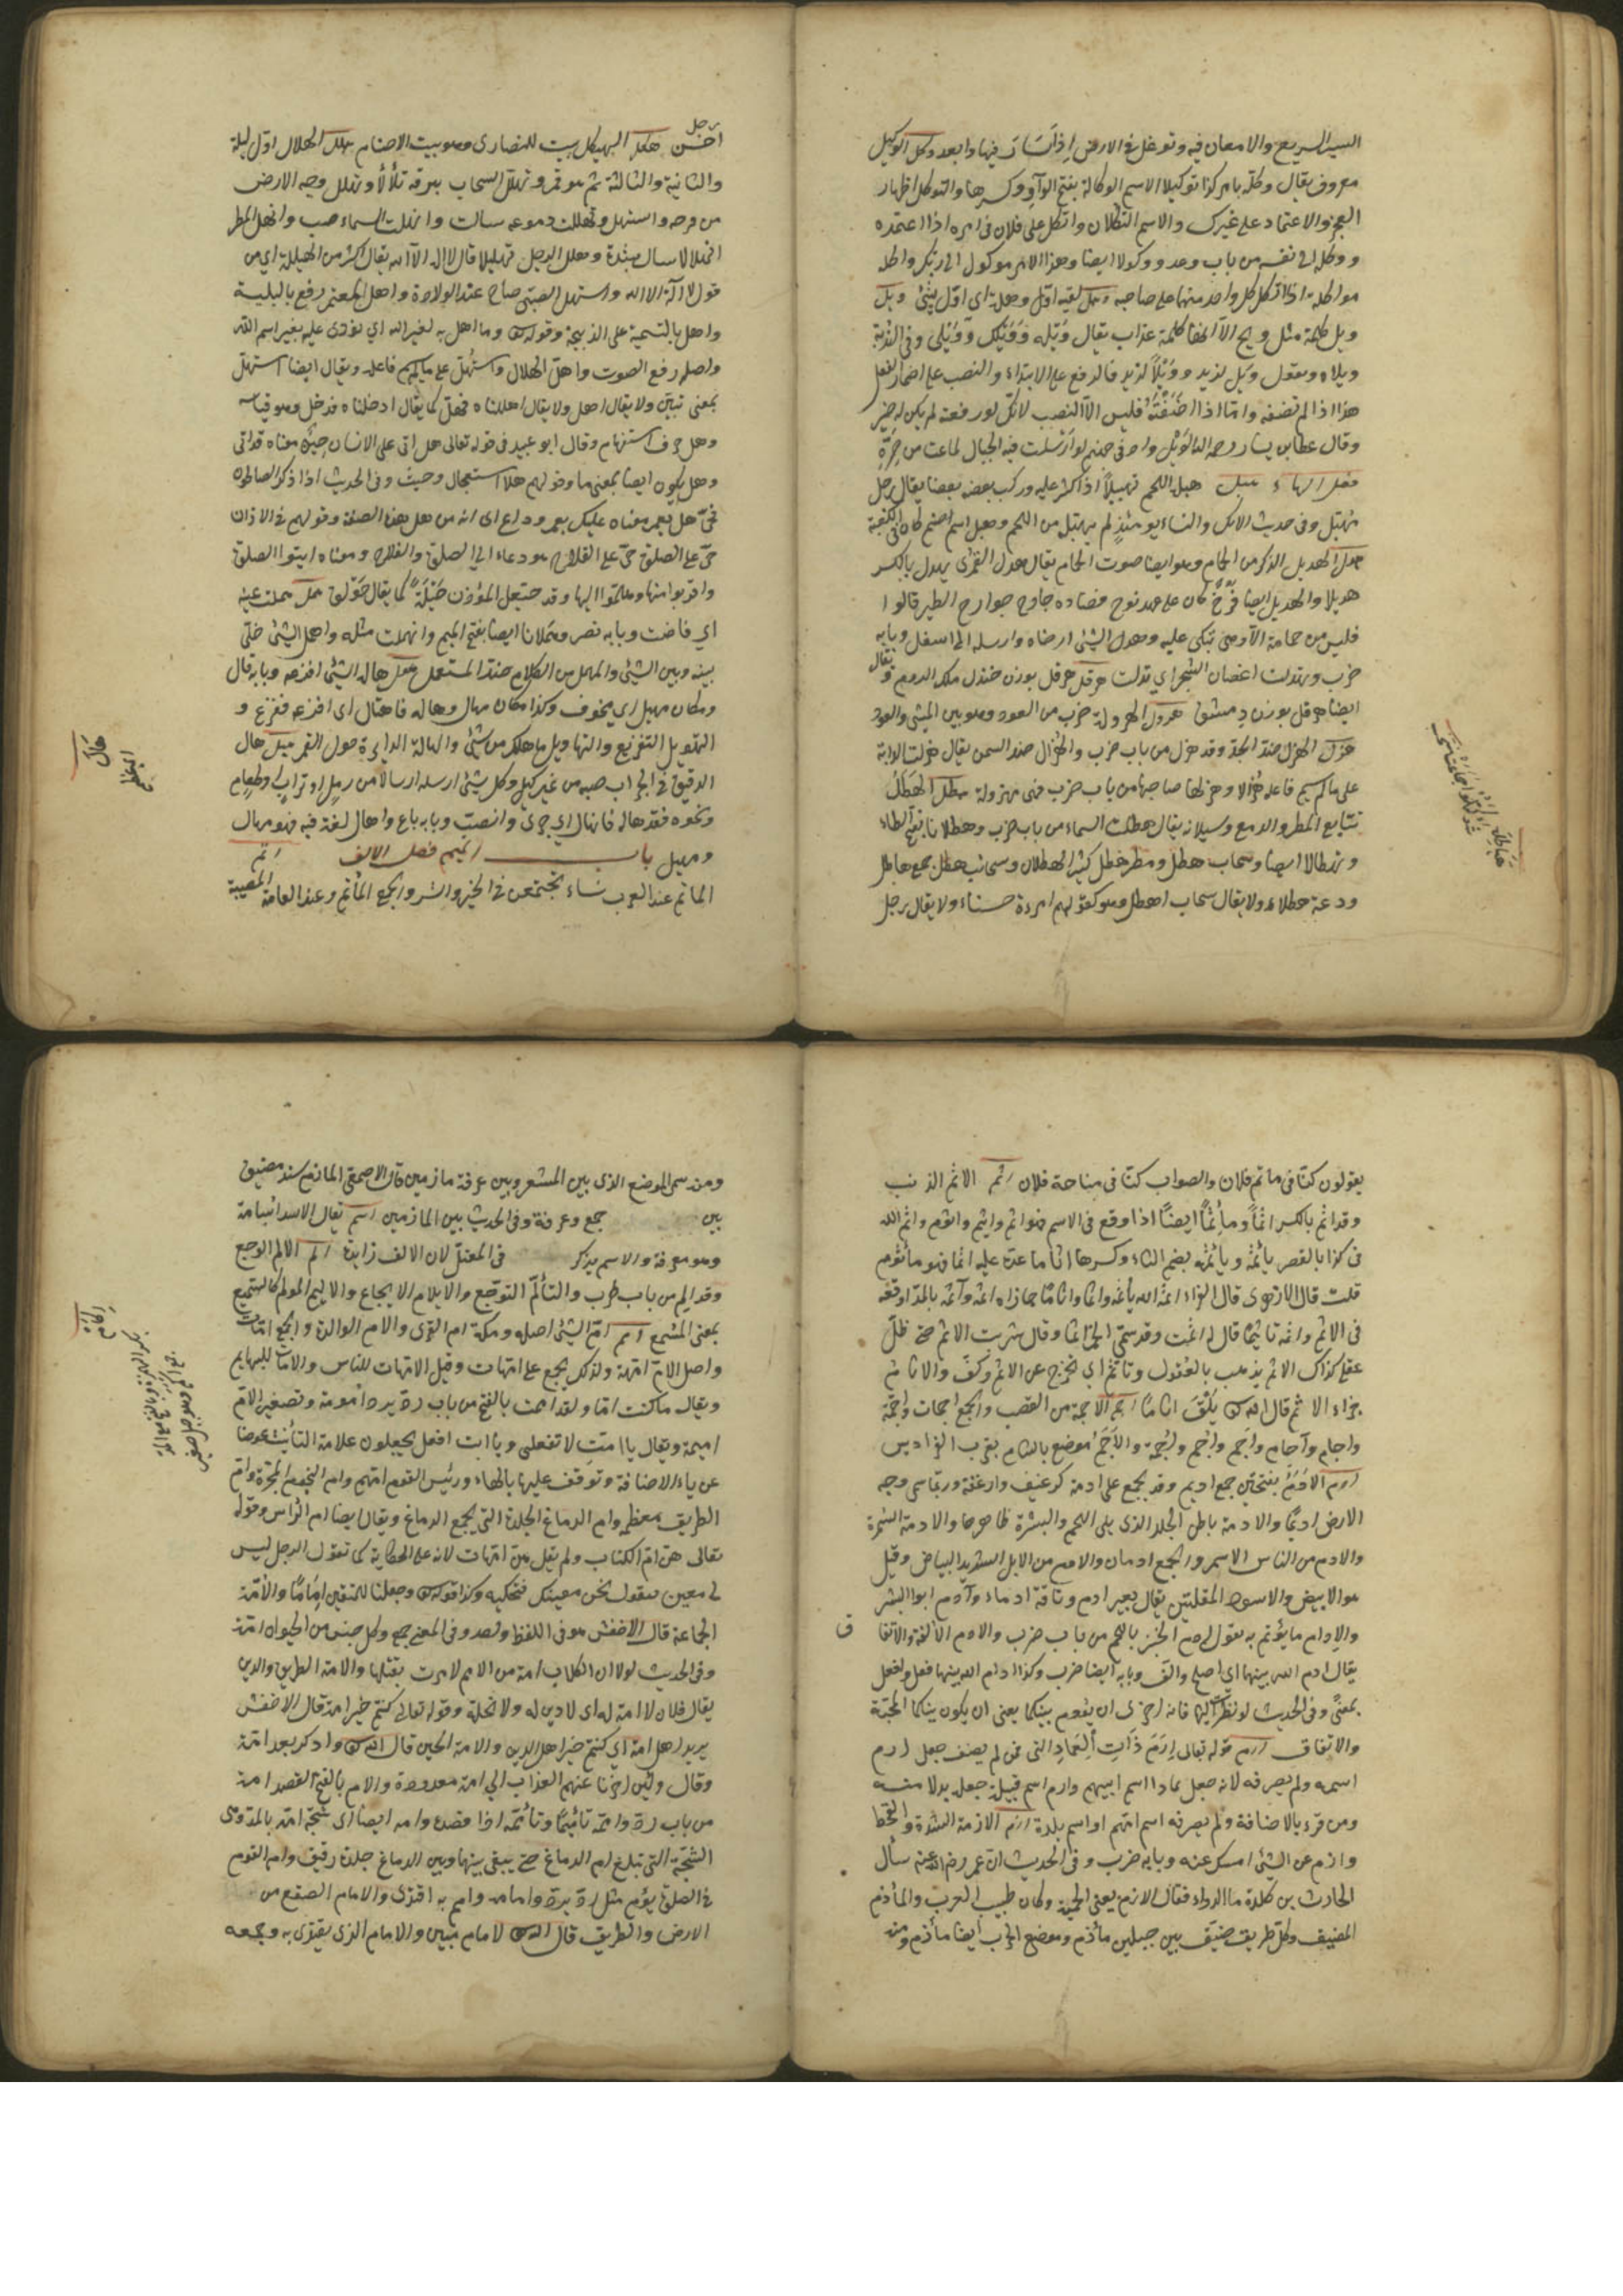 السير السريع والامعان فيه وتوغل في الارض اذا سار فيها وابعد وكل الوكيل
معروف يقال وكله بامر كذا توكيلا الاسم الوكالة بفتح الواو وكسرها والتوكل اظهار
العجز والاعتماد على غيرك والاسم التكلان واتكل على فلان في امره اذا اعتمده
ووكله الى نفسه من باب وعد ووكولا ايضا وهذا الامر موكول الى رايك واكله
مواكلة اذا اتكل كل واحد منهما على صاحبه وهل لقيه اول وهلة اي اول شئ ويل
ويل كلمة مثل ويح الا انها كلمة عذاب يقال ويله وويلك وويلي وفي الندبة
ويلاه وتقول ويل لزيد وويلا لزيد فالرفع على الابتداء والنصب على اضمار الفعل
هذا اذا لم تضفه واما اذا اضفته فليس الا النصب لانك لو رفعته لم يكن له خبر
وقال عطا بن يسار رحمه الله الويل واد في جهنم لو ارسلت فيه الجبال لماعت من حره
فصل الهاء هبل هبله اللحم تهبيلا اذا كثر عليه وركب بعضه بعضا يقال رجل
مهبل وفي حديث الافك والنساء يومئذ لم يهبلهن اللحم وهبل اسم صنم كان في الكعبة
هدل الهديل الذكر من الحمام وهو ايضا صوت الحمام يقال هدل القمرى يهدل بالكسر
هديلا والهديل ايضا فرخ كان على عهد نوح فصاده جارح جوارح الطير قالوا
فليس من حمامة الا وهي تبكي عليه وهدل الشئ ارخاه وارسله الى اسفل وبابه
ضرب وتهدلت اغصان الشجر اي تدلت هرقل هرقل بوزن خندف ملك الروم ويقال
ايضا هرقل بوزن دمشق هرول الهرولة ضرب من العدو وهو بين المشي والعدو
هزل الهزل ضد الجد وقد هزل من باب ضرب والهزال ضد السمن يقال هزلت الدابة
على ما لم يسم فاعله هزالا وهزلها صاحبها من باب ضرب فهي مهزولة هطل الهطل
تتابع المطر والدمع وسيلانه يقال هطلت السماء من باب ضرب وهطلانا بفتح الطاء
وتهطالا ايضا وسحاب هطل ومطر هطل كثير الهطلان وسحائب هطل جمع هاطل
وديمة هطلاء ولا يقال سحاب اهطل وهو كقولهم امرءة حسناء ولا يقال رجل
رجل
احسن هكل الهيكل بيت للنصارى وهو بيت الاصنام هلل الهلال اول ليلة
والثانية والثالثة ثم هو قمر وتهلل السحاب ببرقه تلألأ وتهلل وجه الارض
من فرحه واستهل وتهللت دموعه سالت وانهلت السماء صبت وانهل المطر
انهلالا سال بشدة وهلل الرجل تهليلا قال لا اله الا الله يقال اكثر من الهيللة اي من
قول لا اله الا الله واستهل الصبي صاح عند الولادة واهل المعتمر رفع بالتلبية
واهل بالتسمية على الذبيحة وقوله وما اهل به لغير الله اي نودى عليه بغير اسم الله
واصله رفع الصوت واهل الهلال واستهل على ما لم يسم فاعله ويقال ايضا استهل
بمعنى تبين ولا يقال اهل ولا يقال اهللناه فهل كما يقال ادخلناه فدخل وهو قياسه
وهل حرف استفهام وقال ابو عبيد في قوله تعالى هل اتى على الانسان حين معناه قد اتى
وهل يكون ايضا بمعنى ما وقولهم هلا استعجال وحيث وفي الحديث اذا ذكر الصالحون
فحي هل بعمر معناه عليك بعمر وداع اي انه من هل هذه الصفة وقولهم في الاذان
حي على الصلوة حي على الفلاح هو دعاء الى الصلوة والفلاح ومعناه ايتوا الصلوة
واقربوا منها وهلموا اليها وقد حيعل المؤذن حيعلة كما يقال حولق همل هملت عينه
اي فاضت وبابه نصر وهملانا ايضا بفتح الميم وانهملت مثله واهمل الشئ خلى
بينه وبين الشئ والمهمل من الكلام ضد المستعمل هول هاله الشئ افزعه وبابه قال
ومكان مهيل اي مخوف وكذا مكان مهال وهاله فاهتال اي افزعه ففزع و
التهويل التفزيع والتهاويل ما هالك من شئ والهالة الدايرة حول القمر هيل هال
الدقيق في الجراب صبه من غير كيل وكل شئ ارسله ارسالا من رمل او تراب او طعام
ونحوه فقد هاله فانهال اي جرى وانصب وبابه باع واهال لغة فيه فهو مهال
ومهيل باب الميم فصل الالف اتم
الماتم عند العرب نساء يجتمعن في الخير والشر والجمع المآتم وعند العامة المصيبة
يقولون كنا في ماتم فلان والصواب كنا في مناحة فلان اثم الاثم الذنب
وقد اثم بالكسر اثما ومأثما ايضا اذا وقع في الاسم فهو اثم واثيم واثوم واثمه الله
في كذا بالقصر يأثمه ويأثمه بضم الثاء وكسرها اثاما عده عليه اثما فهو مأثوم
قلت قال الازهرى قال الفراء اثمه الله يأثمه اثما واثاما جازاه اثمه وآثمه بالمد اوقعه
في الاثم واثمه تاثيما قال له اثمت وقد سمي الخمر اثما وقال شربت الاثم حتى ضل
عقلي كذاك الاثم يذهب بالعقول وتاثم اي تخرج عن الاثم وكف والاثام
جزاء الاثم قال الله يلق اثاما اجم الاجمة من القصب والجمع اجمات واجم
واجام وآجام واجم واجم والاجم موضع بالشام بقرب الفراديس
ادم الادم بفتحتين جمع اديم وقد يجمع على ادمة كرغيف وارغفة وربما سمي وجه
الارض اديما والادمة باطن الجلد الذي يلي اللحم والبشرة ظاهرها والادمة السمرة
والادم من الناس الاسمر والجمع ادمان والادم من الابل الشديد البياض وقيل
هو الابيض والاسود المقلتين يقال بعير ادم وناقة ادماء وآدم ابو البشر
والادام ما يؤتدم به تقول ادم الخبز باللحم من باب ضرب والادم الالفة والاتفا ق
يقال ادم الله بينهما اي اصلح والف وبابه ايضا ضرب وكذا ادام الله بينهما فعل وافعل
بمعنى وفي الحديث لو نظرت اليها فانه احرى ان يؤدم بينكما يعني ان يكون بينكما المحبة
والاتفاق ارم قوله تعالى ارم ذات العماد التي فمن لم يضف جعل ارم
اسمه ولم يصرفه لانه جعل عادا اسم ابيهم وارم اسم قبيلة جعله بدلا منه
ومن قرء بالاضافة ولم يصرفه اسم امهم او اسم بلدة ازم الازمة الشدة والقحط
وازم عن الشئ امسك عنه وبابه ضرب وفي الحديث ان عمر رضي الله عنه سأل
الحارث بن كلدة ما الدواء فقال الازم يعني الحمية وكان طبيب العرب والمأزم
المضيق وكل طريق ضيق بين جبلين مأزم وموضع الحرب ايضا مأزم ومنه
ومنه سمى الموضع الذي بين المشعر وبين عرفة مازمين قال الاصمعي المازم سند مضيق
بين جمع وعرفة وفي الحديث بين المازمين اسم يقال الاسد اسامة
وهو معرفة والاسم يذكر في المعتل لان الالف زايدة الم الالم الوجع
وقد الم من باب طرب والتألم التوجع والايلام الايجاع والاليم المولم كالسميع
بمعنى المسمع امم ام الشئ اصله ومكة ام القرى والام الوالدة والجمع امات
واصل الام امهة ولذلك يجمع على امهات وقيل الامهات للناس والامات للبهايم
ويقال ما كنت اما ولقد اممت بالفتح من باب رد يرد امومة وتصغير الام
اميمة ويقال يا امت لا تفعلي ويا ابت افعل يجعلون علامة التأنيث عوضا
عن ياء الاضافة وتوقف عليها بالهاء ورئيس القوم امهم وام النجوم المجرة وام
الطريق معظمه وام الدماغ الجلدة التي تجمع الدماغ ويقال ايضا ام الراس وقوله
تعالى هن ام الكتاب ولم يقل هن امهات لانه على الحكاية كما تقول الرجل ليس
لي معين فتقول نحن معينك فتحكيه وكذا قوله واجعلنا للمتقين اماما والامة
الجماعة قال الاخفش هو في اللفظ واحد وفي المعنى جمع وكل جنس من الحيوان امة
وفي الحديث لولا ان الكلاب امة من الامم لامرت بقتلها والامة الطريق والدين
يقال فلان لا امة له اي لا دين له ولا نحلة وقوله تعالى كنتم خير امة قال الاخفش
يريد اهل امة اي كنتم خير اهل الدين والامة الحين قال الله وادكر بعد امة
وقال ولئن اخرنا عنهم العذاب الى امة معدودة والام بالفتح القصد امه
من باب رد وامه تأميما وتأممه اذا قصده وامه ايضا اي شجه امة بالمد وهي
الشجة التي تبلغ ام الدماغ حتى يبقى بينها وبين الدماغ جلدة رقيق وام القوم
في الصلوة يؤم مثل رد يرد وامامة وايتم به اقتدى والامام الصقع من
الارض والطريق قال الله لامام مبين والامام الذي يقتدى به وجمعه